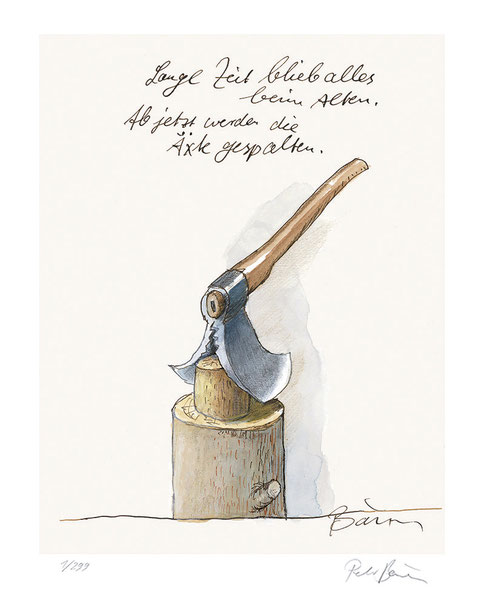 Lange Zeit blieb alles
beim Alten.
Ab jetzt werden die
Äxte gespalten.
1/299